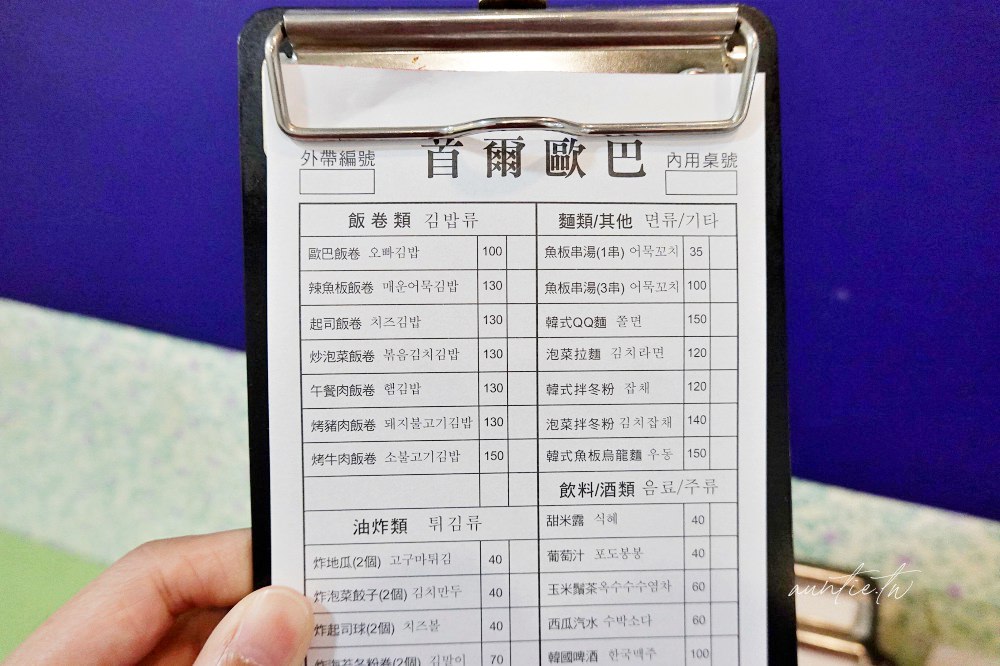 外帶編號 首爾歐巴 內用桌號
飯卷類 김밥류
歐巴飯卷 오빠김밥 100
辣魚板飯卷 매운어묵김밥 130
起司飯卷 치즈김밥 130
炒泡菜飯卷 볶음김치김밥 130
午餐肉飯卷 햄김밥 130
烤豬肉飯卷 돼지불고기김밥 130
烤牛肉飯卷 소불고기김밥 150
油炸類 튀김류
炸地瓜(2個) 고구마튀김 40
炸泡菜餃子(2個) 김치만두 40
炸起司球(2個) 치즈볼 40
炸海苔冬粉卷(2個) 김말이 70
麵類/其他 면류/기타
魚板串湯(1串) 어묵꼬치 35
魚板串湯(3串) 어묵꼬치 100
韓式QQ麵 쫄면 150
泡菜拉麵 김치라면 120
韓式拌冬粉 잡채 120
泡菜拌冬粉 김치잡채 140
韓式魚板烏龍麵 우동 150
飲料/酒類 음료/주류
甜米露 식혜 40
葡萄汁 포도봉봉 40
玉米鬚茶 옥수수수염차 60
西瓜汽水 수박소다 60
韓國啤酒 한국맥주 100
auntie.tw